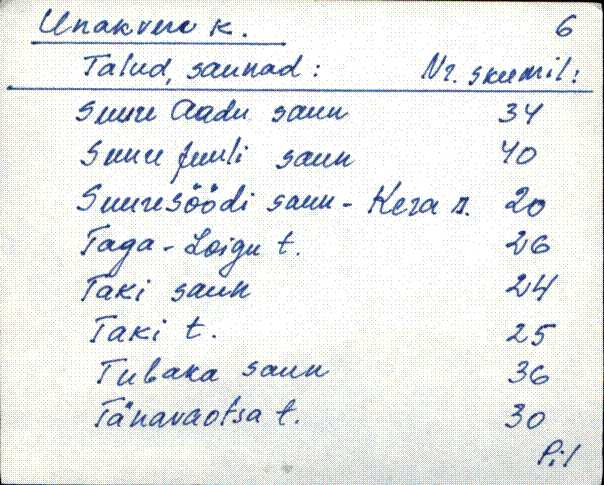 Unakvere k. 6
Talud, saunad: Nr. skeemil:
Suure Aadu saun 34
Suure Juuli saun 40
Suuresöödi saun - Kera s. 20
Taga-Loigu t. 26
Taki saun 24
Taki t. 25
Tubaka saun 36
Tänavaotsa t. 30
Pil